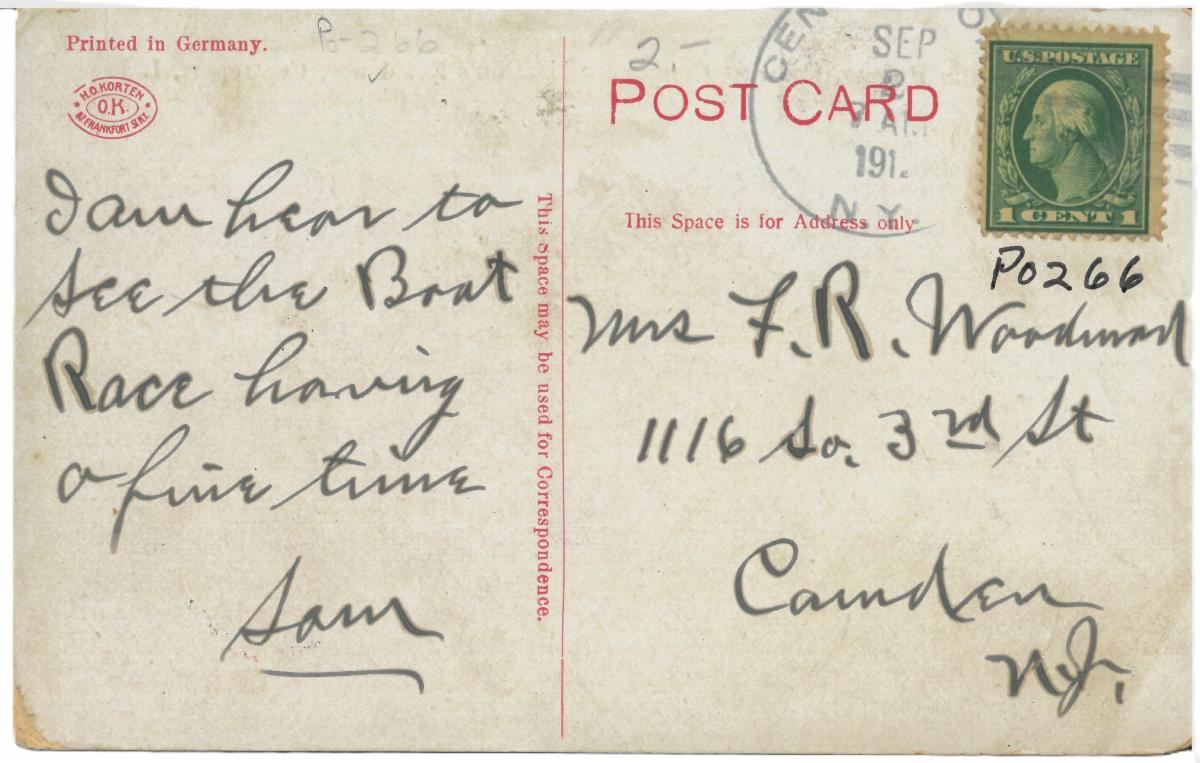 Printed in Germany.
Po-266
H.O. KORTEN
O.K.
61 FRANKFORT ST. N.Y.
I am hear to
see the Boat
Race having
a fine time
Sam
This space may be used for Correspondence.
2.-
POST CARD
CEN
SEP
2
7 AM
191
N.Y.
U.S. POSTAGE
1 CENT 1
This Space is for Address only
Po266
Mrs F. R. Woodward
1116 So. 3rd St
Camden
N.J.